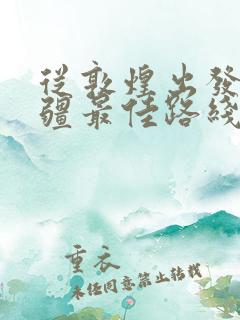 從敦煌出發
疆最佳路綫
重衣
未經同意禁止轉載